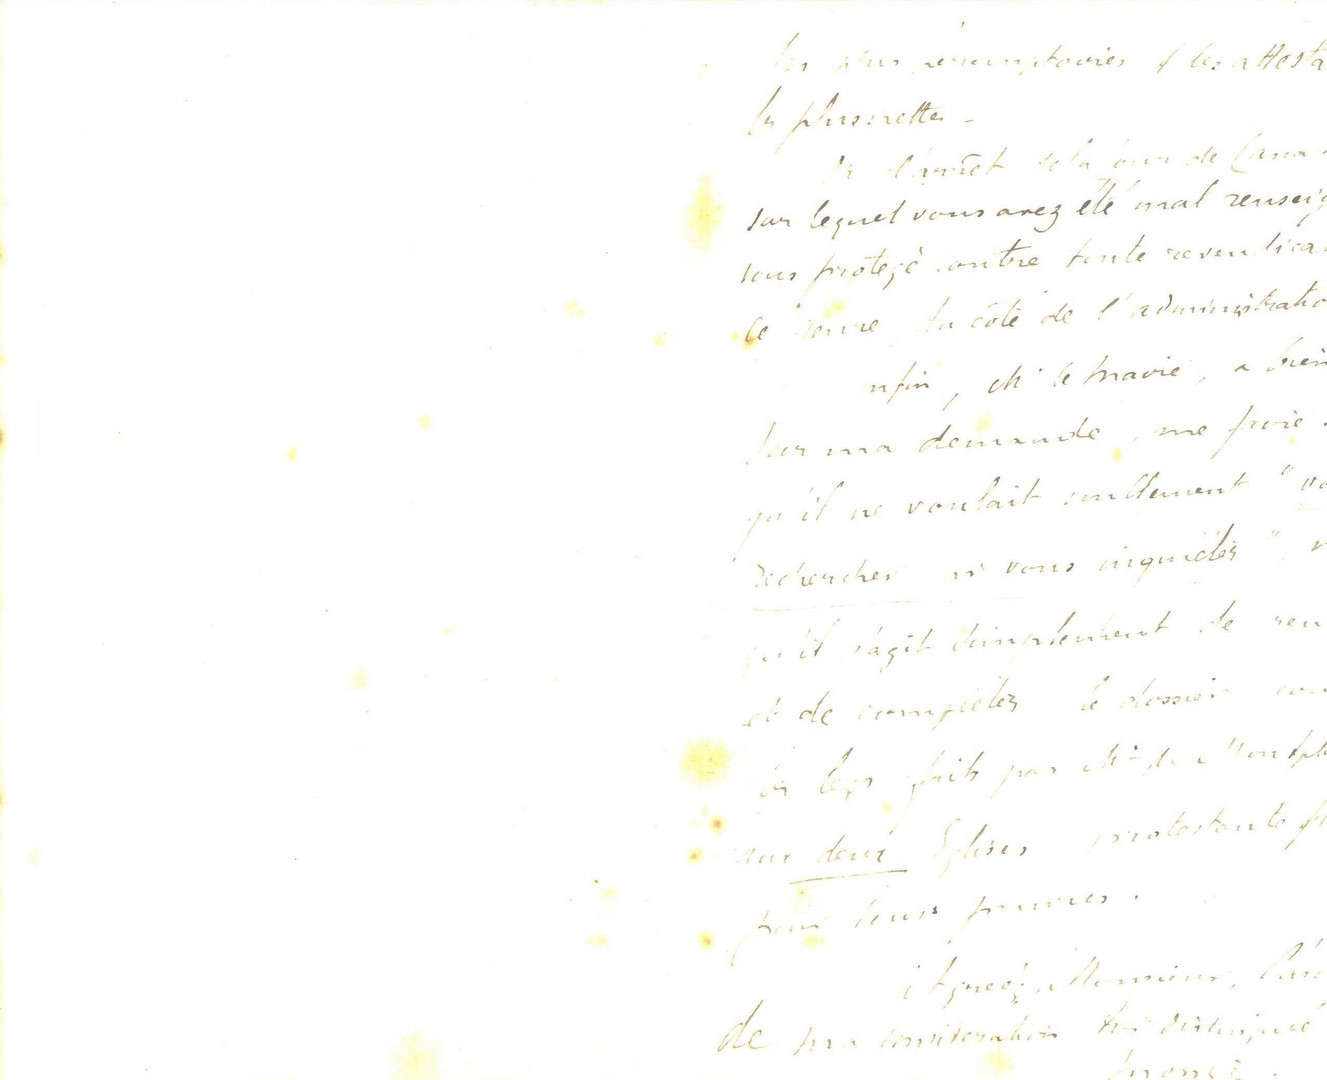 les plus péremptoires & les attesta
les plus nettes -
Or l'arrêt de la Cour de Cassa
sur lequel vous avez été mal renseig
vous protège contre toute revendica
ce genre du côté de l'administratio
nfin, Mr le Maire, a bien
sur ma demande, me
qu'il ne voulait nullement "vo
rechercher ni vous inquiéter",
qu'il s'agit simplement de ren
et de compléter le dossier con
les legs faits par Mr de Montpl
aux deux Eglises protestante
pour leurs pauvres.
Agréez, Monsieur, l'as
de ma considération très distinguée